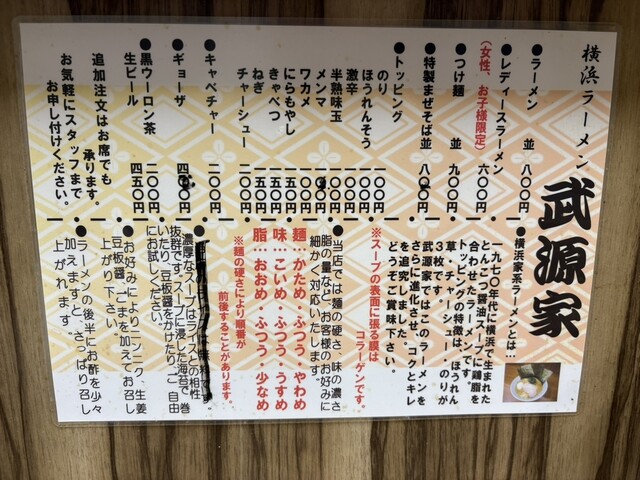 横浜ラーメン
武源家
●ラーメン 並 八〇〇円
●レディースラーメン 六〇〇円
(女性、お子様限定)
●つけ麺 並 九〇〇円
●特製まぜそば並 八〇〇円
●トッピング
のり 一〇〇円
ほうれんそう 一〇〇円
激辛 一〇〇円
半熟味玉 一〇〇円
メンマ
ワカメ 一〇〇円
にらもやし 一五〇円
きゃべつ 一五〇円
ねぎ 一五〇円
チャーシュー 二〇〇円
●キャベチャー 二〇〇円
●ギョーザ
●黒ウーロン茶 二〇〇円
生ビール 四五〇円
追加注文はお席でも
承ります。
お気軽にスタッフまで
お申し付けください。
●横浜家系ラーメンとは…
一九七〇年代に横浜で生まれた
とんこつ醤油スープに鶏脂を
合わせたラーメンです。
トッピングの特徴は、ほうれん
草・チャーシュー・のりが
3枚です。
武源家ではこのラーメンを
さらに進化させ、コクとキレ
を追究しました。
どうぞご賞味下さい。
※スープの表面に張る膜は
コラーゲンです。
●当店では麺の硬さ、味の濃さ
脂の量など、お客様のお好みに
細かく対応いたします。
麺…かため・ふつう・やわめ
味…こいめ・ふつう・うすめ
脂…おおめ・ふつう・少なめ
※麺の硬さにより順番が
前後することがあります。
●濃厚なスープはライスとの相性
抜群です。スープに浸した海苔で巻
いたり、豆板醤をかけたり、ご自由
にお試しください。
●お好みによりニンニク、生姜
豆板醤、ごまを加えてお召し
上がり下さい。
●ラーメンの後半にお酢を少々
加えますと、さっぱり召し
上がれます。